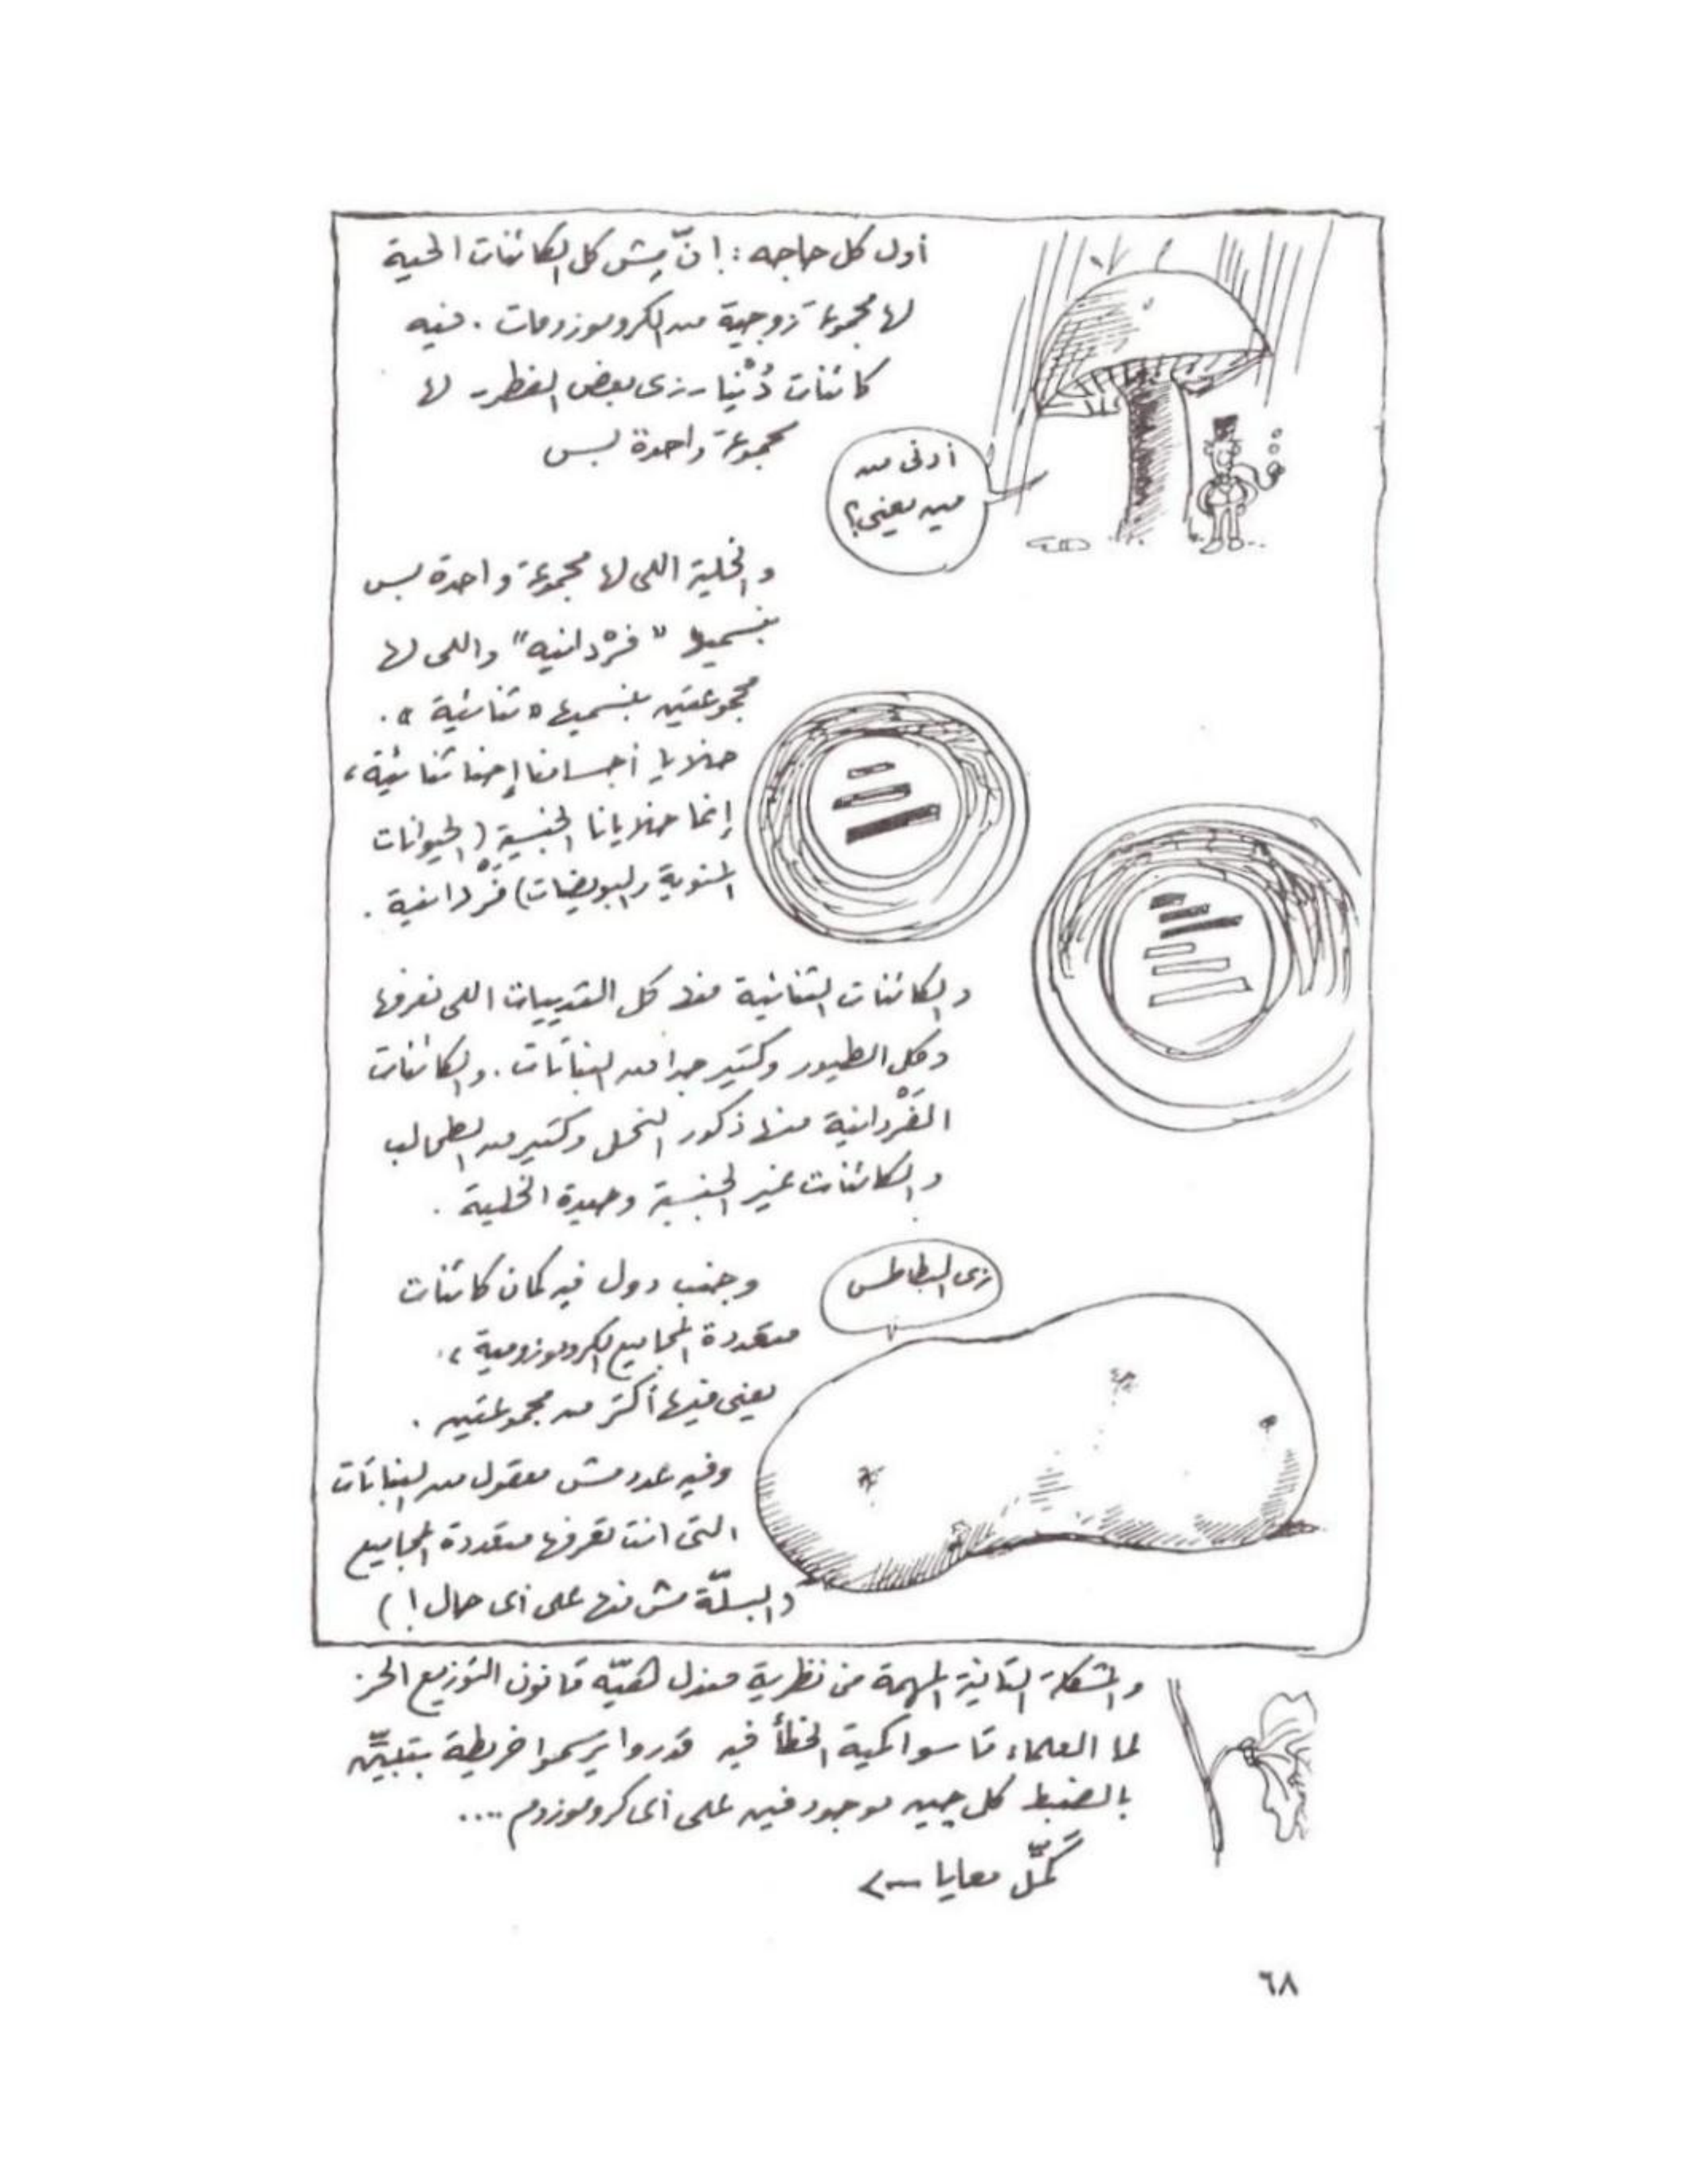 أول كل حاجه: إنّ مِش كل الكائنات الحية
لها مجموعة زوجية من الكروموزومات. فيه
كائنات دُنْيا - زى بعض الفطر - لها
مجموعة واحدة بس
أدنى من
مين يعنى؟
والخلية اللى لها مجموعة واحدة بس
بنسميها "فَرْدانيه" واللى لها
مجموعتين بنسميها "ثنائية".
خلايا أجسامنا إحنا ثنائية،
إنما خلايانا الجنسية (الحيوانات
المنوية والبويضات) فَرْدانية.
والكائنات الثنائية منها كل الثدييات اللى نعرفها
وكل الطيور وكتير جدا من النباتات. والكائنات
الفَرْدانية منها ذكور النحل وكتير من الطحالب
والكائنات غير الجنسية وحيدة الخلية.
زى البطاطس
وجنب دول فيه كمان كائنات
متعددة المجاميع الكروموزومية،
يعنى فيها أكتر من مجموعتين.
وفيه عدد مش معقول من النباتات
التى انت تعرفها متعددة المجاميع
(البسلّة مش منها على أى حال!)
والمشكلة التانية المهمة فى نظرية مندل هىّه قانون التوزيع الحر.
لما العلماء قاسوا كمية الخطأ فيه قدروا يرسموا خريطة بتبيّن
بالضبط كل چين موجود فين على أى كروموزوم....
كَمِّل معايا
٦٨